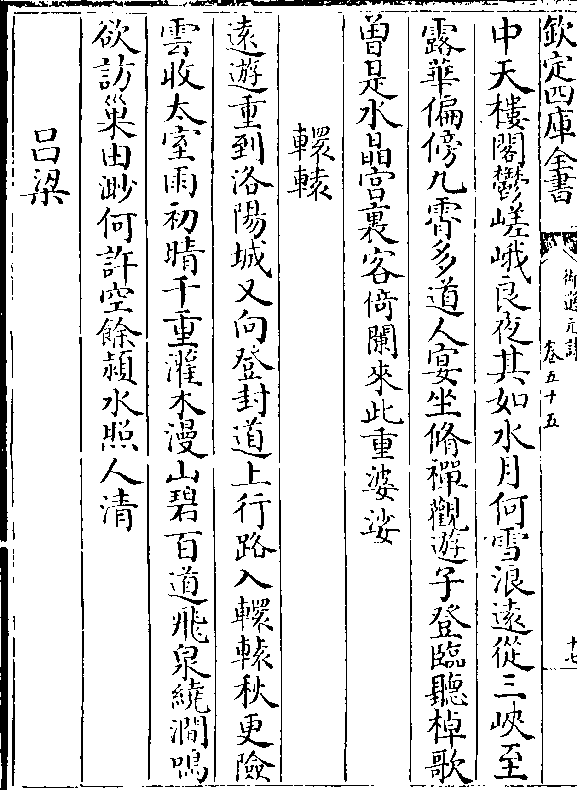 欽定四庫全書
御選元詩
卷五十五
十七
中天樓閣鬱嵯峨良夜其如水月何雪浪遠從三峽至
露華偏傍九霄多道人宴坐脩禪觀遊子登臨聽棹歌
曽是水晶宮裏客倚闌來此重婆娑
轘轅
遠遊重到洛陽城又向登封道上行路入轘轅秋更險
雲收太室雨初晴千重灌木漫山碧百道飛泉繞澗鳴
欲訪巢由渺何許空餘潁水照人清
吕梁